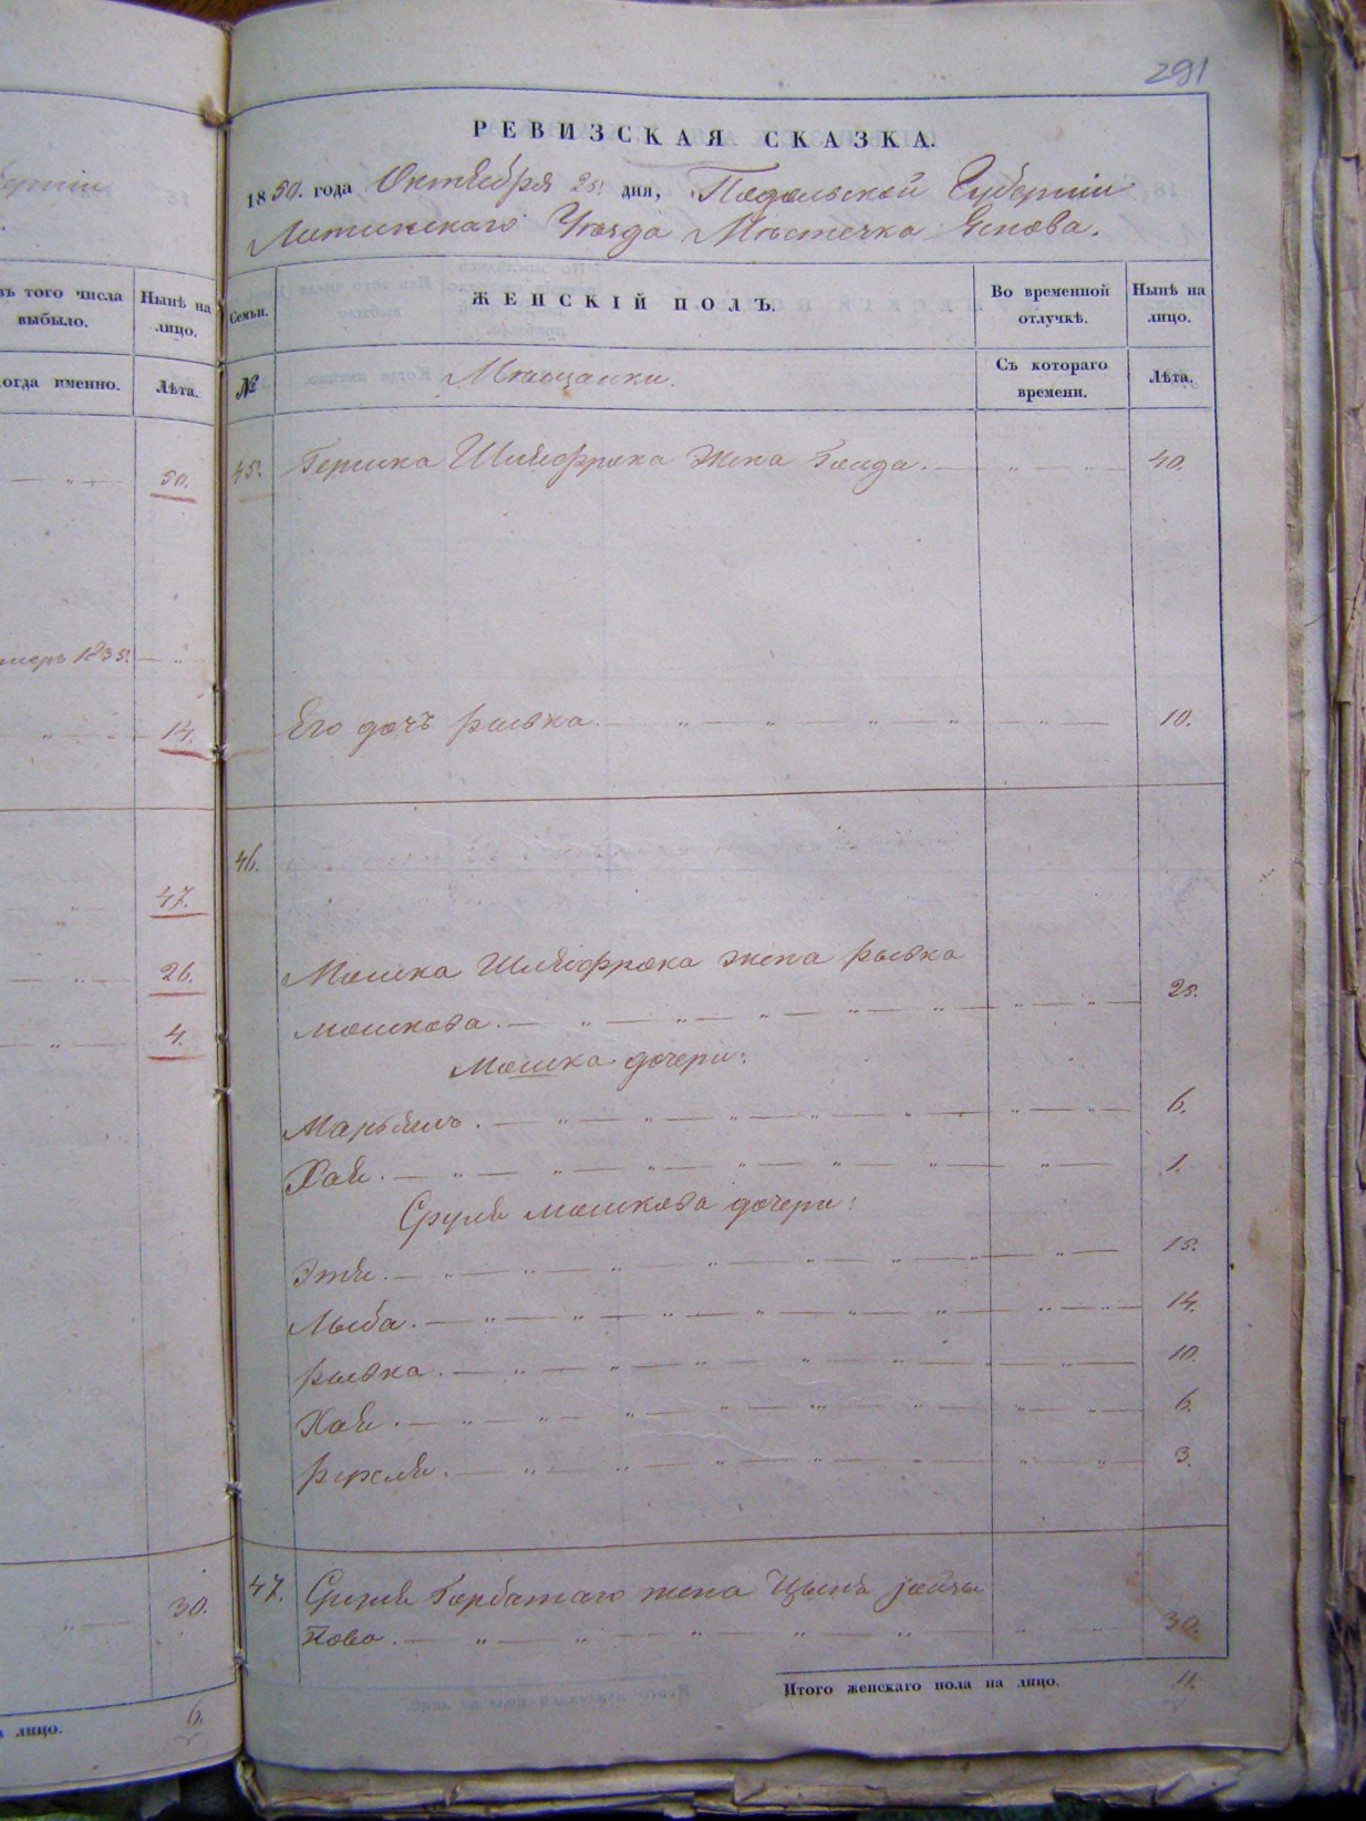 291
РЕВИЗСКАЯ СКАЗКА.
1850. года Октября 25! дня, Подольской Губерніи
Литинскаго Уѣзда Мѣстечка Янова.
въ того числа выбыло.
Нынѣ на лицо.
Семьи.
ЖЕНСКІЙ ПОЛЪ.
Во временной отлучкѣ.
Нынѣ на лицо.
огда именно.
Лѣта.
№
Мѣщанки.
Съ котораго времени.
Лѣта.
50.
45. Гершка жена Гольда. 40.
1835.
14.
Его дочь Рывка. 10.
46.
47.
26.
Мошка жена Рывка
Мошкова. 25.
4.
Мошка дочери:
Марьямъ. 6.
Хая. 1.
Сруля Мошкова дочери:
Этя. 15.
Лыба. 14.
Рывка. 10.
Хая. 6.
Рухля. 3.
30.
47. Сруля Горбатаго жена
нова. 30.
Итого женскаго пола на лицо. 11.
лицо. 6.